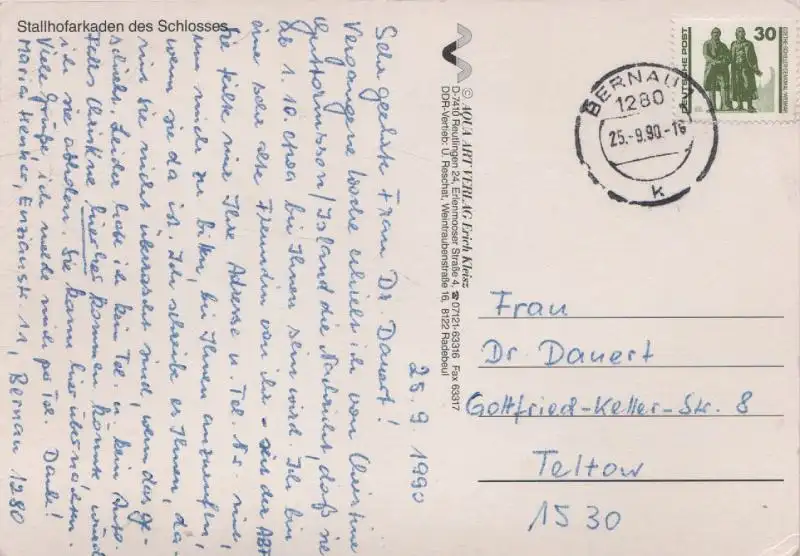 Stallhofarkaden des Schlosses
25. 9. 1990
Sehr geehrte Frau Dr. Dauert!
Vergangene Woche erhielt ich von Christine
Guttormsson/Island die Nachricht, daß sie
ab 1. 10 etwa bei Ihnen sein wird. Ich bin
eine sehr alte Freundin von ihr – seit der ABF
Sie teilte mir Ihre Adresse u. Tel. Nr. mit,
um mich zu bitten, bei Ihnen anzurufen,
wenn sie da ist. Ich schreibe es Ihnen, da-
mit Sie nicht überrascht sind, wenn das ge-
schieht. Leider habe ich kein Tel. u. kein Auto.
Falls Christine hierher kommen könnte, würde
ich sie abholen. Sie kann hier übernachten.
Viele Grüße, ich melde mich per Tel. Danke!
Maria Henker, Enzianstr. 11, Bernau 1280
© AQUA ART VERLAG Erich Kleisz
D-7410 Reutlingen 24, Erlenmooser Straße 4, ☎ 07121-63316 Fax 63317
DDR-Vertrieb: U. Reschat, Weintraubenstraße 16, 8122 Radebeul
30
DEUTSCHE POST
BERNAU 1
1280
25.-9.90.-16
k
Frau
Dr. Dauert
Gottfried-Keller-Str. 8
Teltow
1530